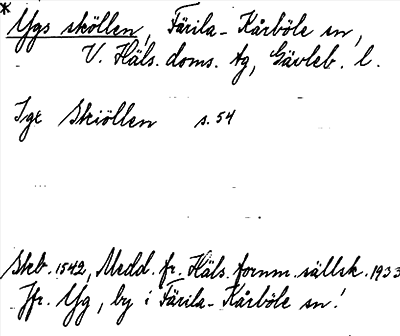 * Ygs sköllen, Färila-Kårböle sn,
V. Häls. doms. tg, Gävleb. l.
Igs Skiöllen s. 54
Skb. 1542, Medd. fr. Häls. fornm. sällsk. 1933
Jfr. Yg, by i Färila-Kårböle sn!